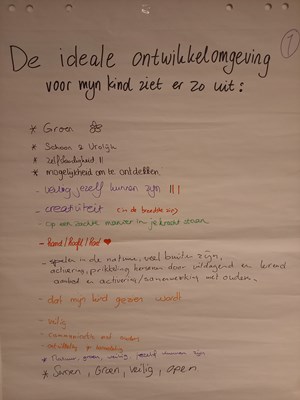 1
De ideale ontwikkelomgeving
voor mijn kind ziet er zo uit:
* Groen
* Schoon & Vrolijk
* zelfstandigheid II
* mogelijkheid om te ontdekken
- veilig jezelf kunnen zijn III
- creativiteit (in de breedste zin)
- op een zachte manier in je kracht staan
- Hand/Hoofd/Hart
- spelen in de natuur, veel buiten zijn,
activering, prikkeling, door uitdagend en lerend
aanbod en activering/samenwerking met ouders.
- dat mijn kind gezien wordt
- veilig
- communicatie met ouders
- ontwikkeling
* Natuur, groen, veilig, jezelf kunnen zijn
* Schoon, Groen, veilig, open